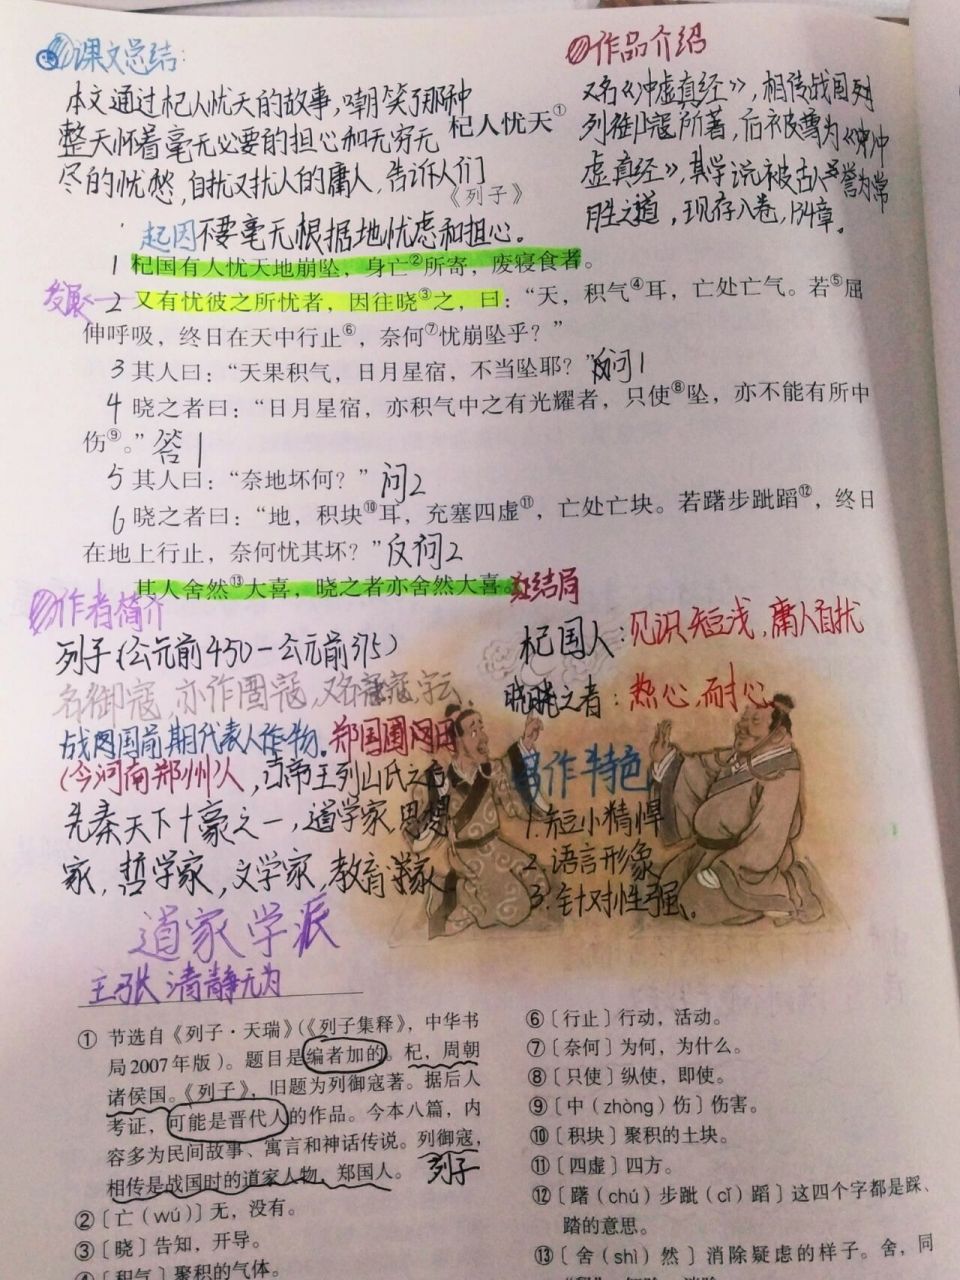 课文总结：
本文通过杞人忧天的故事，嘲笑了那种
整天怀着毫无必要的担心和无穷无
尽的忧愁，自扰又扰人的庸人，告诉人们
不要毫无根据地忧虑和担心。
作品介绍
又名《冲虚真经》，相传战国列
列御寇所著，后被尊为《冲
虚真经》，其学说被古人誉为常
胜之道，现存八卷，134章。
杞人忧天①
《列子》
起因
1 杞国有人忧天地崩坠，身亡②所寄，废寝食者。
发展
2 又有忧彼之所忧者，因往晓③之，曰：“天，积气④耳，亡处亡气。若⑤屈
伸呼吸，终日在天中行止⑥，奈何⑦忧崩坠乎？”
3 其人曰：“天果积气，日月星宿，不当坠耶？” 反问1
4 晓之者曰：“日月星宿，亦积气中之有光耀者，只使⑧坠，亦不能有所中
伤⑨。” 答1
5 其人曰：“奈地坏何？” 问2
6 晓之者曰：“地，积块⑩耳，充塞四虚⑪，亡处亡块。若躇步跐蹈⑫，终日
在地上行止，奈何忧其坏？” 反问2
其人舍然⑬大喜，晓之者亦舍然大喜。 结局
作者简介
列子（公元前450－公元前375）
名御寇，亦作圄寇，又名寇，字云
战国前期代表人物。郑国圃田
（今河南郑州）人，古帝王列山氏之后，
先秦天下十豪之一，道学家，思想
家，哲学家，文学家，教育家
道家学派
主张 清静无为
杞国人：见识短浅，庸人自扰
晓之者：热心，耐心
写作特色
1. 短小精悍
2. 语言形象
3. 针对性强。
① 节选自《列子·天瑞》（《列子集释》，中华书
局2007年版）。题目是编者加的。杞，周朝
诸侯国。《列子》，旧题为列御寇著。据后人
考证，可能是晋代人的作品。今本八篇，内
容多为民间故事、寓言和神话传说。列御寇，
相传是战国时的道家人物，郑国人。 列子
②〔亡（wú）〕无，没有。
③〔晓〕告知，开导。
④〔积气〕聚积的气体。
⑥〔行止〕行动，活动。
⑦〔奈何〕为何，为什么。
⑧〔只使〕纵使，即使。
⑨〔中（zhòng）伤〕伤害。
⑩〔积块〕聚积的土块。
⑪〔四虚〕四方。
⑫〔躇（chú）步跐（cǐ）蹈〕这四个字都是踩、
踏的意思。
⑬〔舍（shì）然〕消除疑虑的样子。舍，同